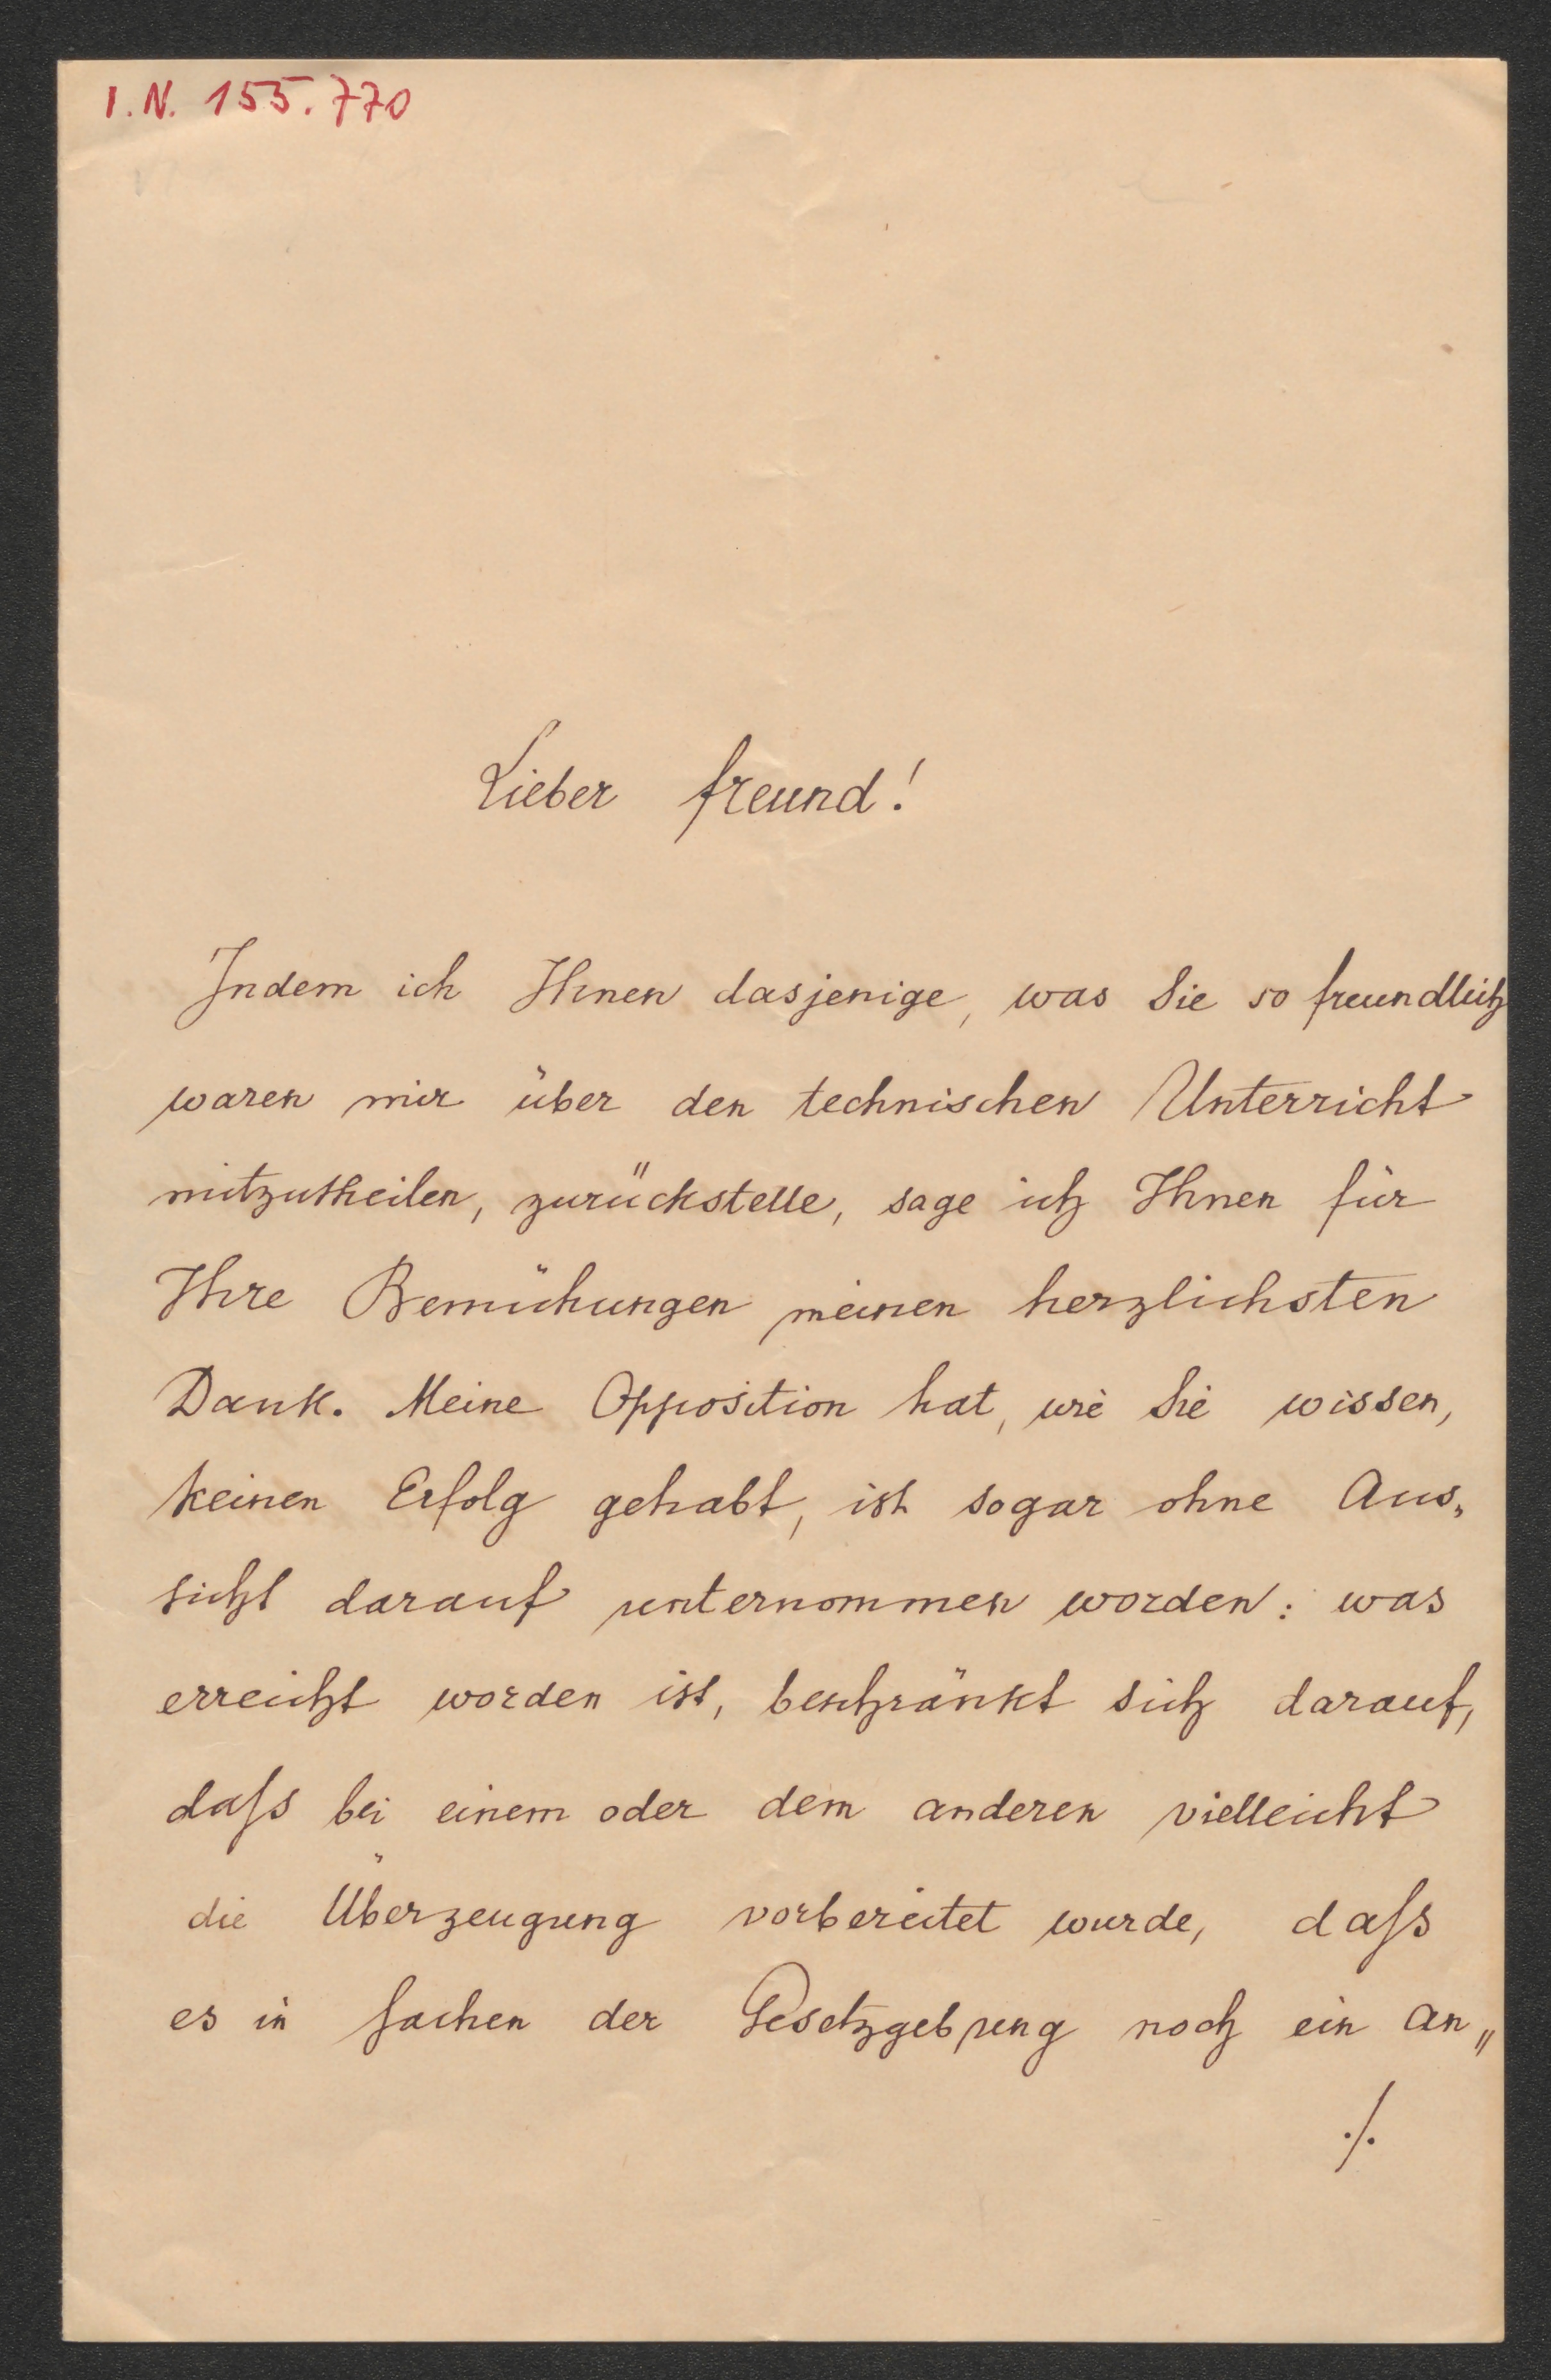 I.N. 155.770
Lieber Freund!
Indem ich Ihnen dasjenige, was Sie so freundlich
waren mir über den technischen Unterricht
mitzutheilen, zurückstelle, sage ich Ihnen für
Ihre Bemühungen meinen herzlichsten
Dank. Meine Opposition hat, wie Sie wissen,
keinen Erfolg gehabt, ist sogar ohne Aus„
sicht darauf unternommen worden: was
erreicht worden ist, beschränkt sich darauf,
daſs bei einem oder dem anderen vielleicht
die Überzeugung vorbereitet wurde, daſs
es in Sachen der Gesetzgebung noch ein an„
./.